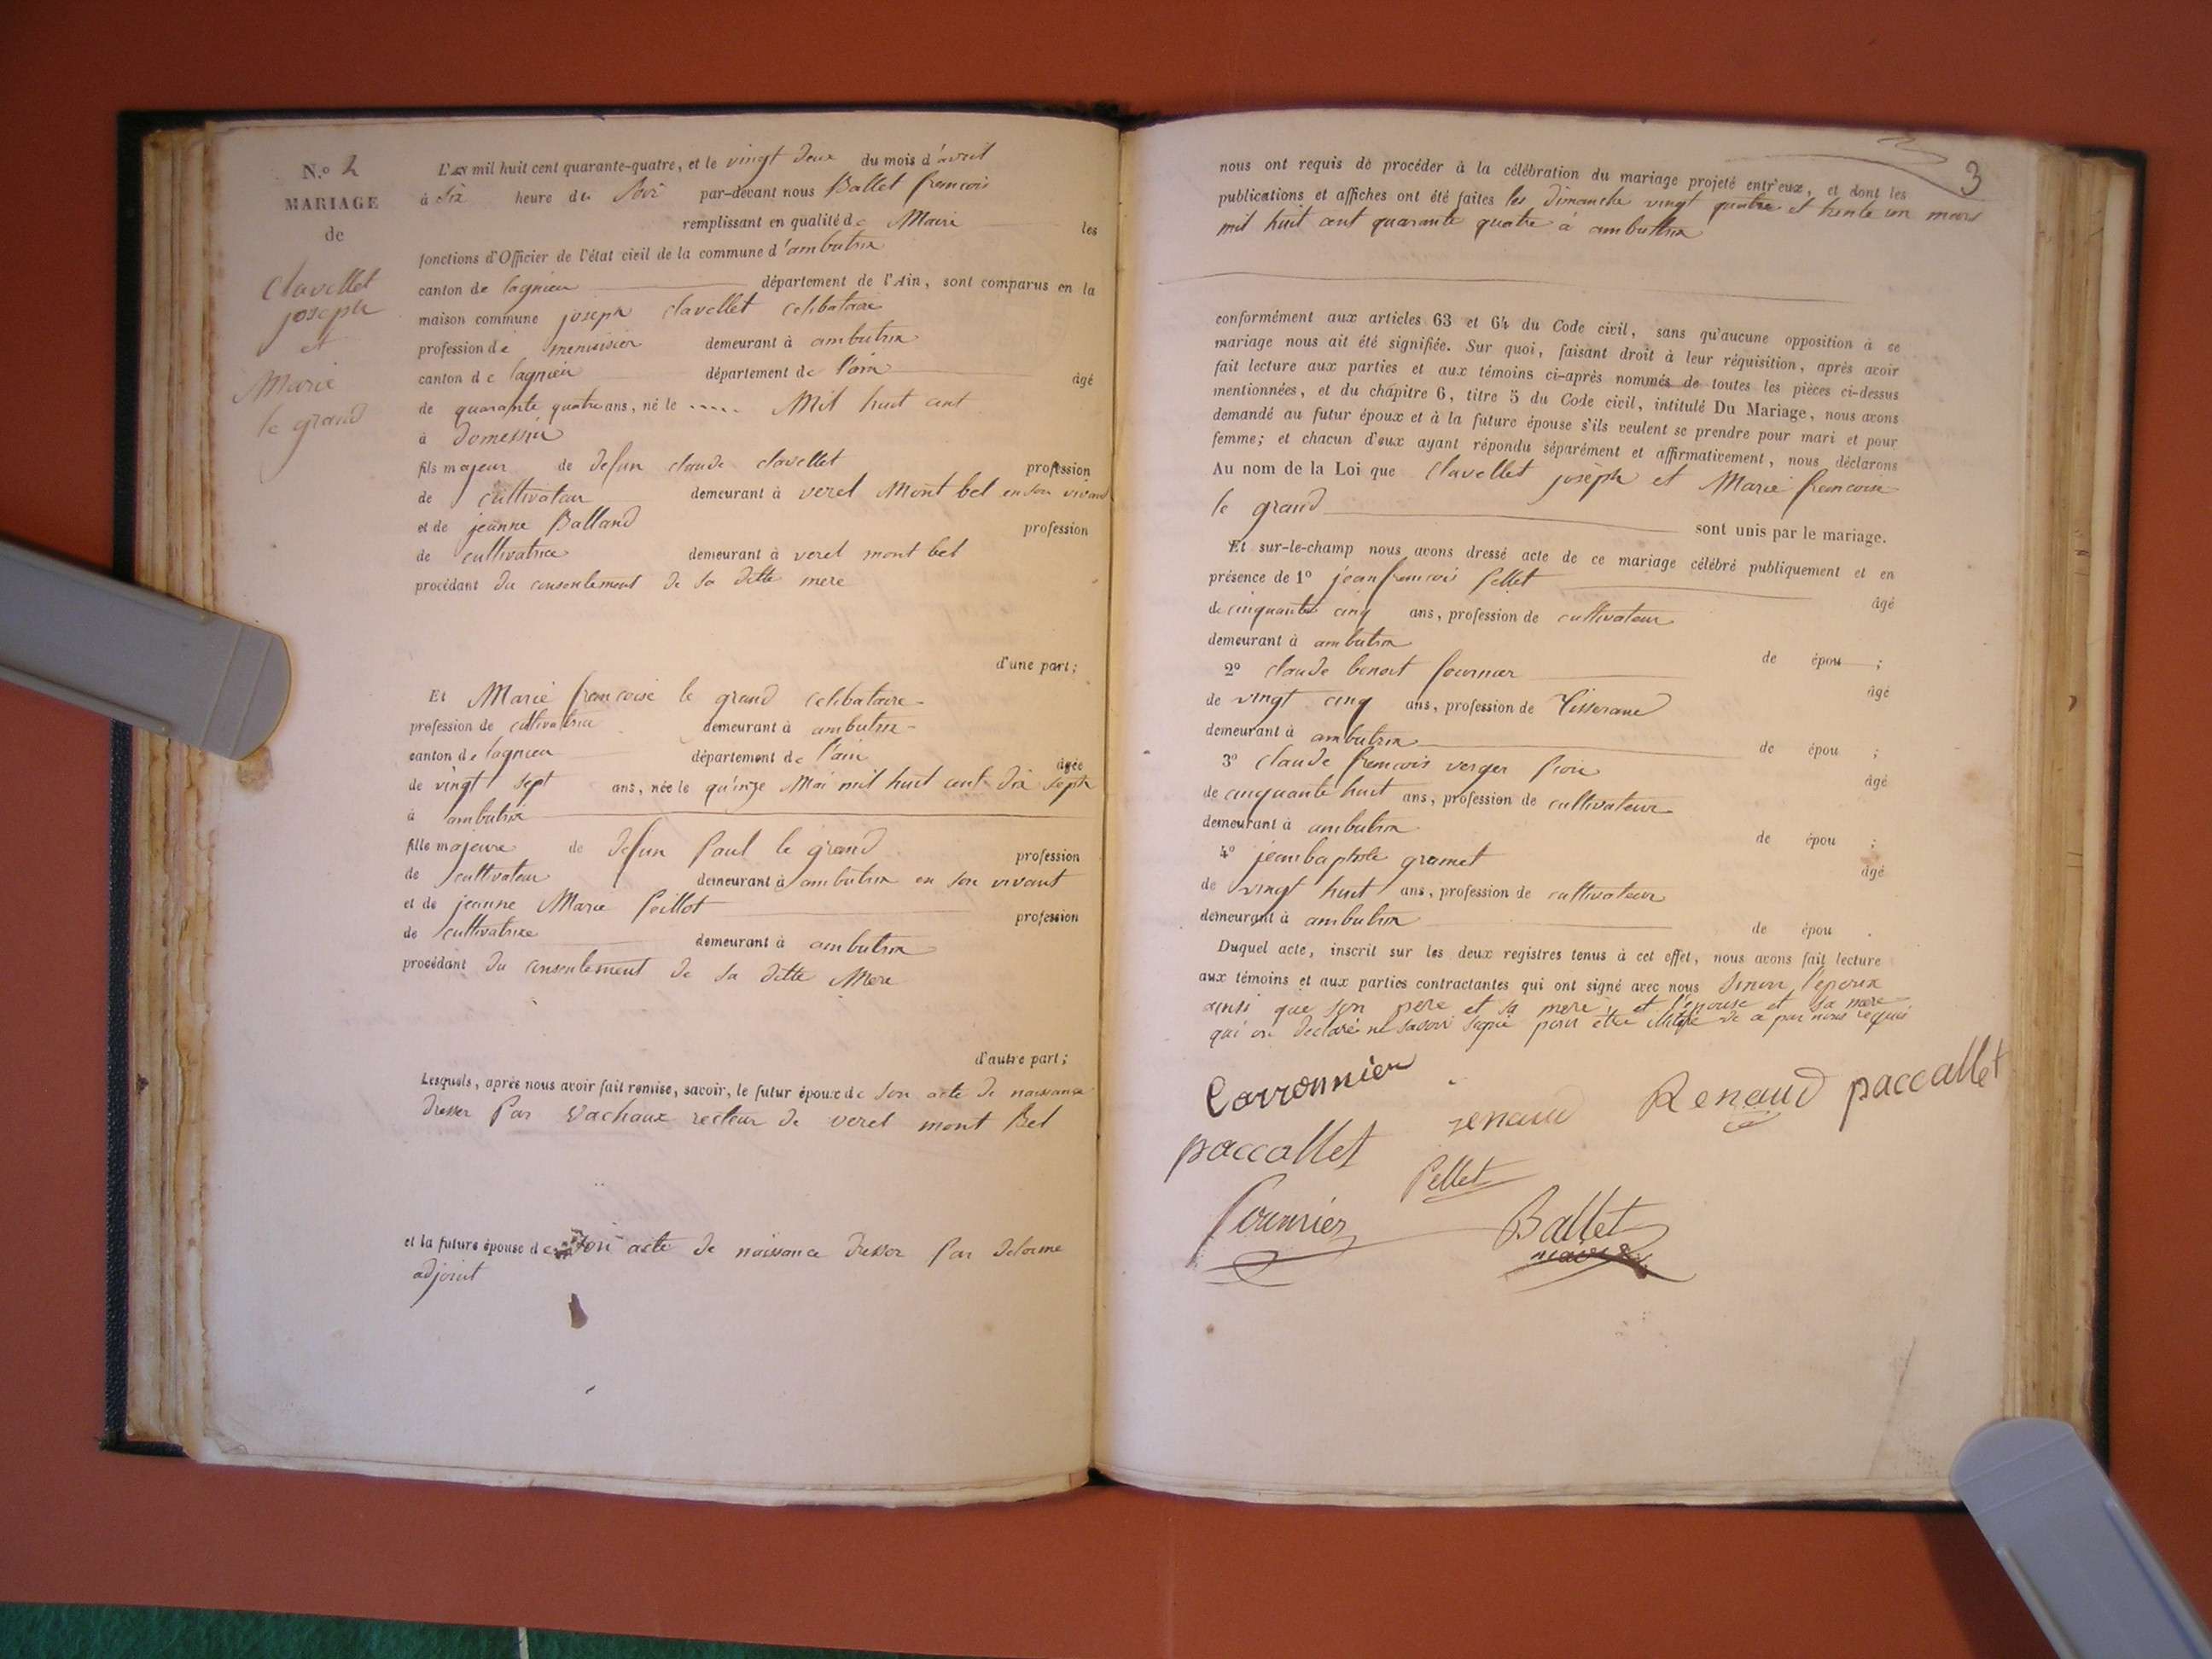 N.º 2
MARIAGE
de
Clavellet
joseph
et
Marie
le grand
L'AN mil huit cent quarante-quatre, et le vingt deux du mois d'avril
à Six heure du Soir par-devant nous Ballet francois
remplissant en qualité de Maire les
fonctions d'Officier de l'état civil de la commune d'ambutrix
canton de lagnieu département de l'Ain, sont comparus en la
maison commune joseph Clavellet Celibataire
profession de menuisier demeurant à ambutrix
canton de lagnieu département de l'ain âgé
de quarante quatre ans, né le ..... Mil huit cent
à Domessin
fils majeur de defun claude clavellet profession
de cultivateur demeurant à verel Mont bel en son vivant
et de jeanne Balland profession
de cultivatrice demeurant à verel mont bel
procédant du consentement de sa ditte mere
d'une part;
Et Marie francoise le grand celibataire
profession de cultivatrice demeurant à ambutrix
canton de lagnieu département de l'ain âgée
de vingt sept ans, née le qu'inze Mai mil huit cent dix sept
à ambutrix
fille majeure de defun Paul le grand profession
de cultivateur demeurant à ambutrix en son vivant
et de jeanne Marie Peillot profession
de cultivatrice demeurant à ambutrix
procédant du consentement de sa ditte Mere
d'autre part;
Lesquels, après nous avoir fait remise, savoir, le futur époux de son acte de naissance
dresser Par Vachaux recteur de verel mont Bel
et la future épouse de son acte de naissance dresser Par delorme
adjoint
3
nous ont requis de procéder à la célébration du mariage projeté entr'eux, et dont les
publications et affiches ont été faites les dimanche vingt quatre et trente un mars
mil huit cent quarante quatre à ambutrix
conformément aux articles 63 et 64 du Code civil, sans qu'aucune opposition à ce
mariage nous ait été signifiée. Sur quoi, faisant droit à leur réquisition, après avoir
fait lecture aux parties et aux témoins ci-après nommés de toutes les pièces ci-dessus
mentionnées, et du chapitre 6, titre 5 du Code civil, intitulé Du Mariage, nous avons
demandé au futur époux et à la future épouse s'ils veulent se prendre pour mari et pour
femme; et chacun d'eux ayant répondu séparément et affirmativement, nous déclarons
Au nom de la Loi que Clavellet joseph et Marie francoise
le grand sont unis par le mariage.
Et sur-le-champ nous avons dressé acte de ce mariage célébré publiquement et en
présence de 1º jean francois Pellet âgé
de cinquante cinq ans, profession de cultivateur
demeurant à ambutrix de épou ;
2º claude benoit fournier âgé
de vingt cinq ans, profession de Tisserane
demeurant à ambutrix de épou ;
3º claude francois verger âgé
de cinquante huit ans, profession de cultivateur
demeurant à ambutrix de épou ;
4º jean baptiste gramet âgé
de vingt huit ans, profession de cultivateur
demeurant à ambutrix de épou .
Duquel acte, inscrit sur les deux registres tenus à cet effet, nous avons fait lecture
aux témoins et aux parties contractantes qui ont signé avec nous Sinon l'epoux
ainsi que son pere et sa mere, et l'epouse et sa mere
qui on declaré ne savoir signé pour être de ce par nous requis
Corronnier
paccallet renaud Renaud paccallet
Pellet
fournier Ballet
maire